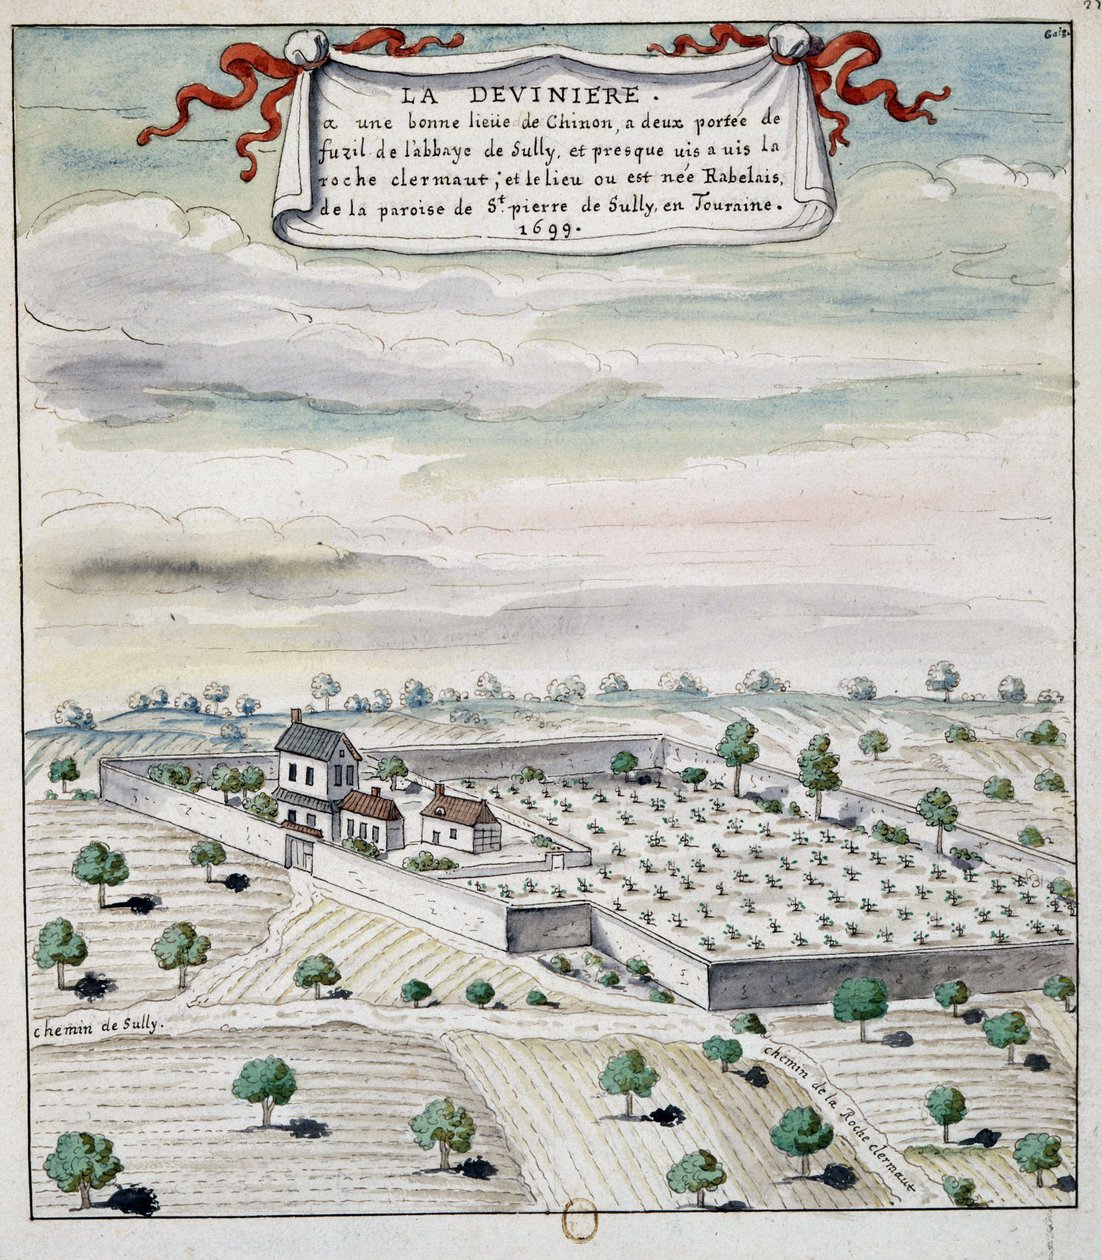 Gaig.
LA DEVINIERE.
a une bonne lieüe de Chinon, a deux portée de
fuzil de l'abbaye de Sully, et presque uis a uis la
roche clermaut; et le lieu ou est née Rabelais,
de la paroise de St. pierre de Sully, en Touraine.
1699.
chemin de Sully.
chemin de la Roche clermaut